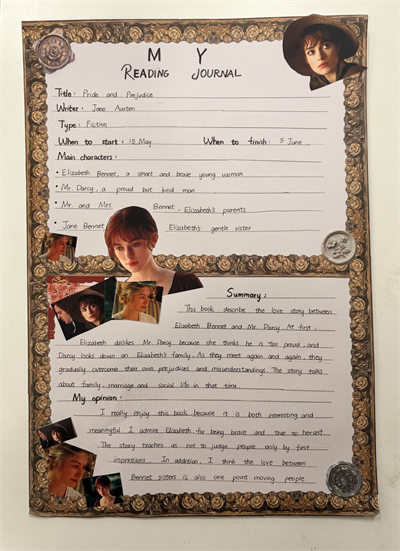 MY
READING JOURNAL
Title: Pride and Prejudice
Writer: Jane Austen
Type: Fiction
When to start: 15 May When to finish: 5 June
Main characters:
• Elizabeth Bennet, a smart and brave young woman
• Mr. Darcy, a proud but kind man
• Mr. and Mrs. Bennet, Elizabeth's parents
• Jane Bennet, Elizabeth's gentle sister
Summary:
This book describe the love story between
Elizabeth Bennet and Mr. Darcy. At first,
Elizabeth dislikes Mr. Darcy because she thinks he is too proud, and
Darcy looks down on Elizabeth's family. As they meet again and again, they
gradually overcome their own prejudices and misunderstandings. The story talks
about family, marriage and social life in that time.
My opinion:
I really enjoy this book because it is both interesting and
meaningful. I admire Elizabeth for being brave and true to herself.
The story teaches us not to judge people only by first
impressions. In addition, I think the love between
Bennet sisters is also one point moving people